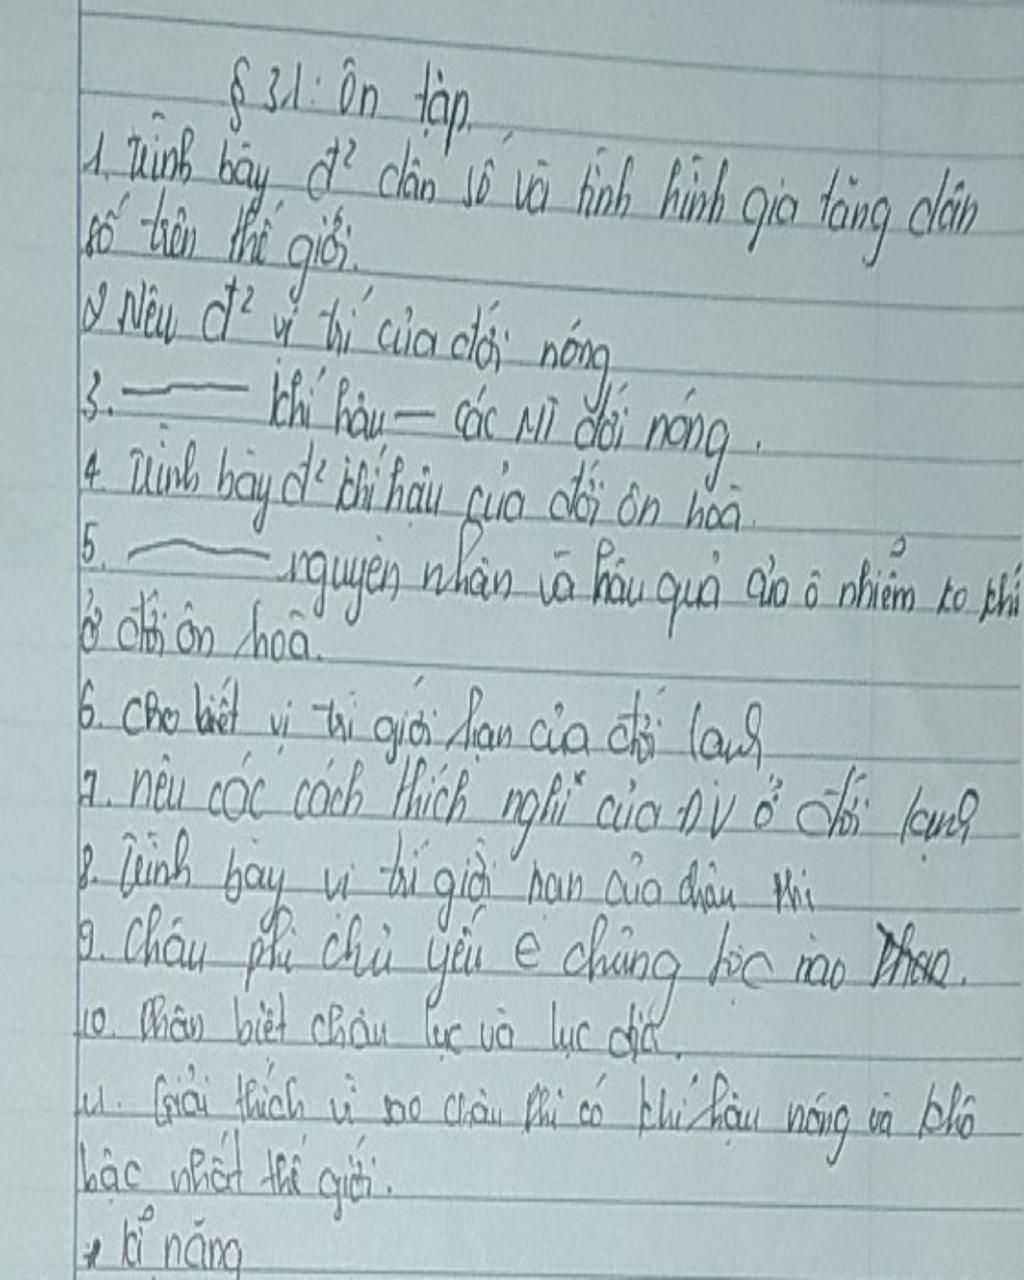 § 31: Ôn tập.
1. Trình bày đ² dân số và tình hình gia tăng dân
số trên thế giới.
2 Nêu đ² vị trí của đới nóng
3. —— khí hậu — các MT đới nóng.
4 Trình bày đ² khí hậu của đới ôn hoà.
5. —— nguyên nhân và hậu quả của ô nhiễm ko khí
ở đới ôn hoà.
6. Cho biết vị trí giới hạn của đới lạnh
7. nêu các cách thích nghi của ĐV ở đới lạnh
8. Trình bày vị trí giới hạn của châu Phi
9. Châu phi chủ yếu e chủng tộc nào
10. Phân biệt châu lục và lục địa.
11. Giải thích vì sao châu Phi có khí hậu nóng và khô
bậc nhất thế giới.
* kĩ năng